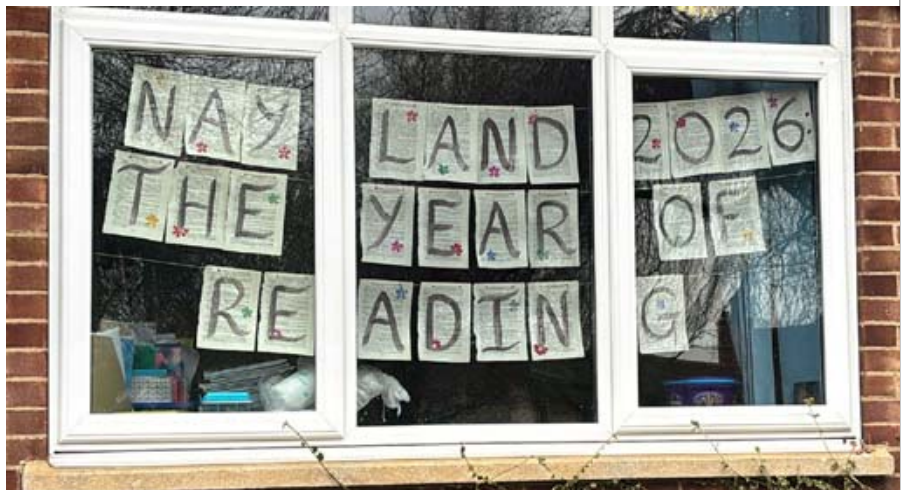 NAYLAND 2026
THE YEAR OF
READING